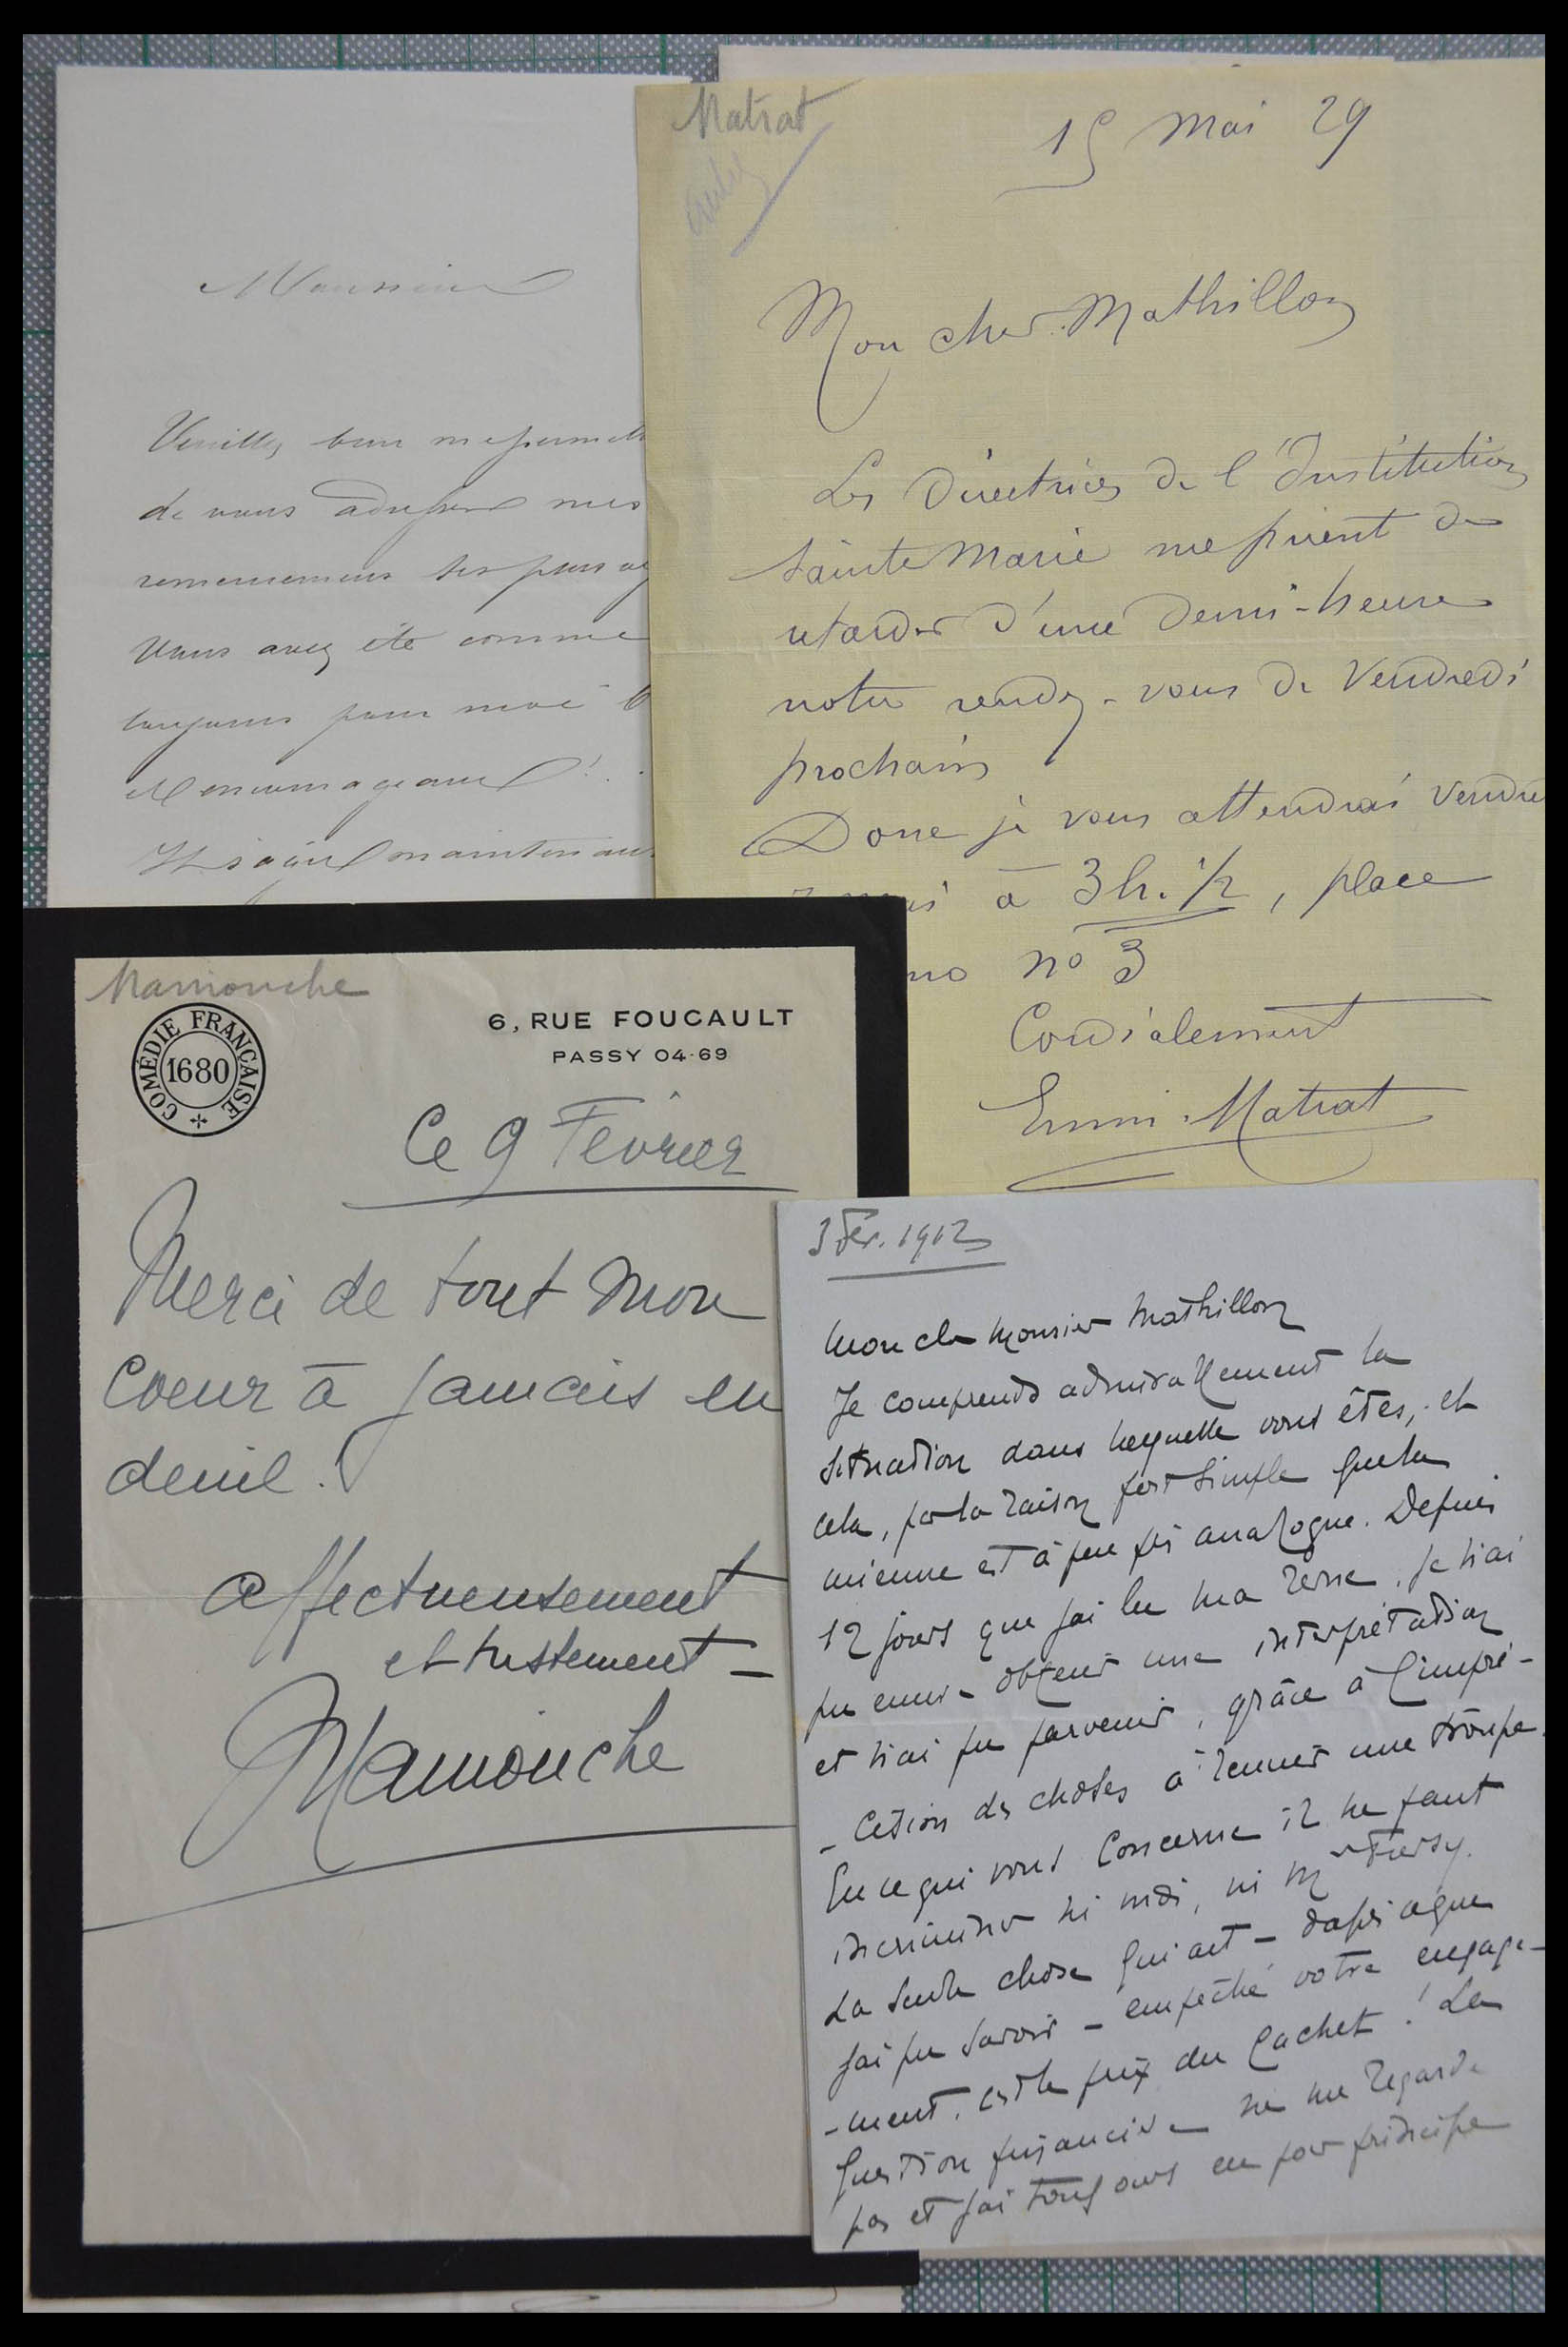 Monsieur
Veuillez bien me permett
de vous adresser mes
remerciements les plus
Vous avez été comme
toujours pour moi
encourageant !
maintenant
Matrat
15 Mai 29
Mon cher Mathillon
Les Directrices de l'Institution
Sainte Marie me prient de
retarder d'une demi-heure
notre rendez-vous de Vendredi
prochain
Donc je vous attendrai Vendre
à 3h. 1/2, place
no n° 3
Cordialement
Matrat
Mamouche
COMÉDIE FRANÇAISE
1680
6, RUE FOUCAULT
PASSY 04-69
Ce 9 Février
Merci de tout mon
Coeur à jamais en
deuil.
affectueusement
et tristement -
Mamouche
3 Fév. 1912
Mon cher Monsieur Mathillon
Je comprends admirablement la
situation dans laquelle vous êtes, et
cela, par la raison fort simple que la
mienne est à peu près analogue. Depuis
12 jours que j'ai lu ma revue, je n'ai
pu encore obtenir une interprétation
et n'ai pu parvenir, grâce à l'impré-
-cision des choses à réunir une troupe.
En ce qui vous concerne il ne faut
incriminer ni moi, ni Mr Fursy.
La seule chose qui ait - d'après ce que
j'ai pu savoir - empêché votre engage-
-ment, c'est le prix du cachet ! La
question financière ne me regarde
pas et j'ai toujours eu pour principe